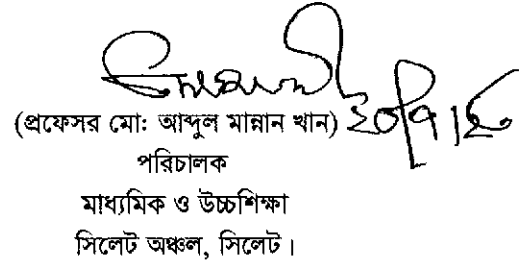 (প্রফেসর মো: আব্দুল মান্নান খান)
পরিচালক
মাধ্যমিক ও উচ্চশিক্ষা
সিলেট অঞ্চল, সিলেট।